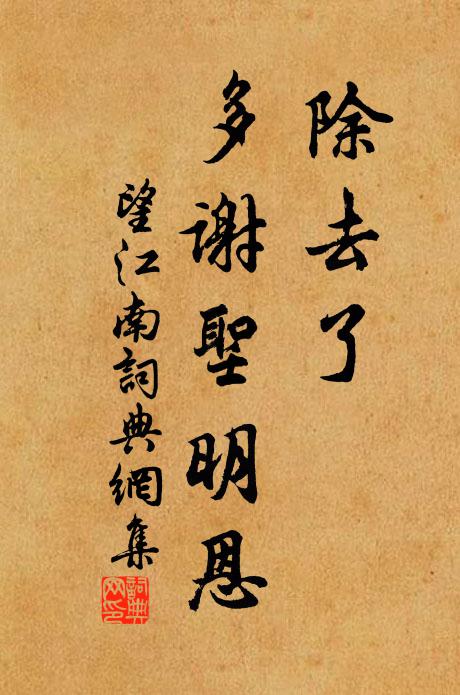 除去了
多謝聖明恩
望江南詞典網集
詞典
网印